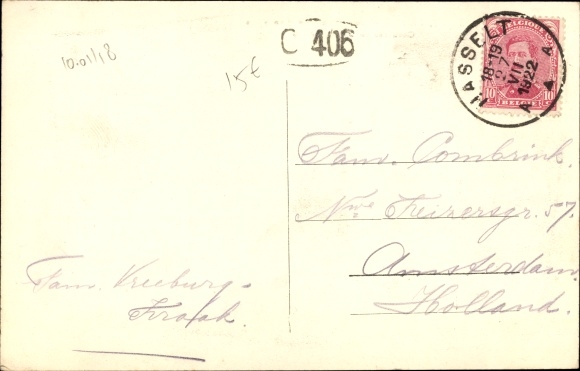 10.01/18
15€
C 406
HASSELT
18-19
27
VII
1922
A A
BELGIQUE
10 10
BELGIE
Fam. Combrink.
Nwe Keizersgr. 57.
Amsterdam.
Holland.
Fam. Kreeburg-
Kraak.